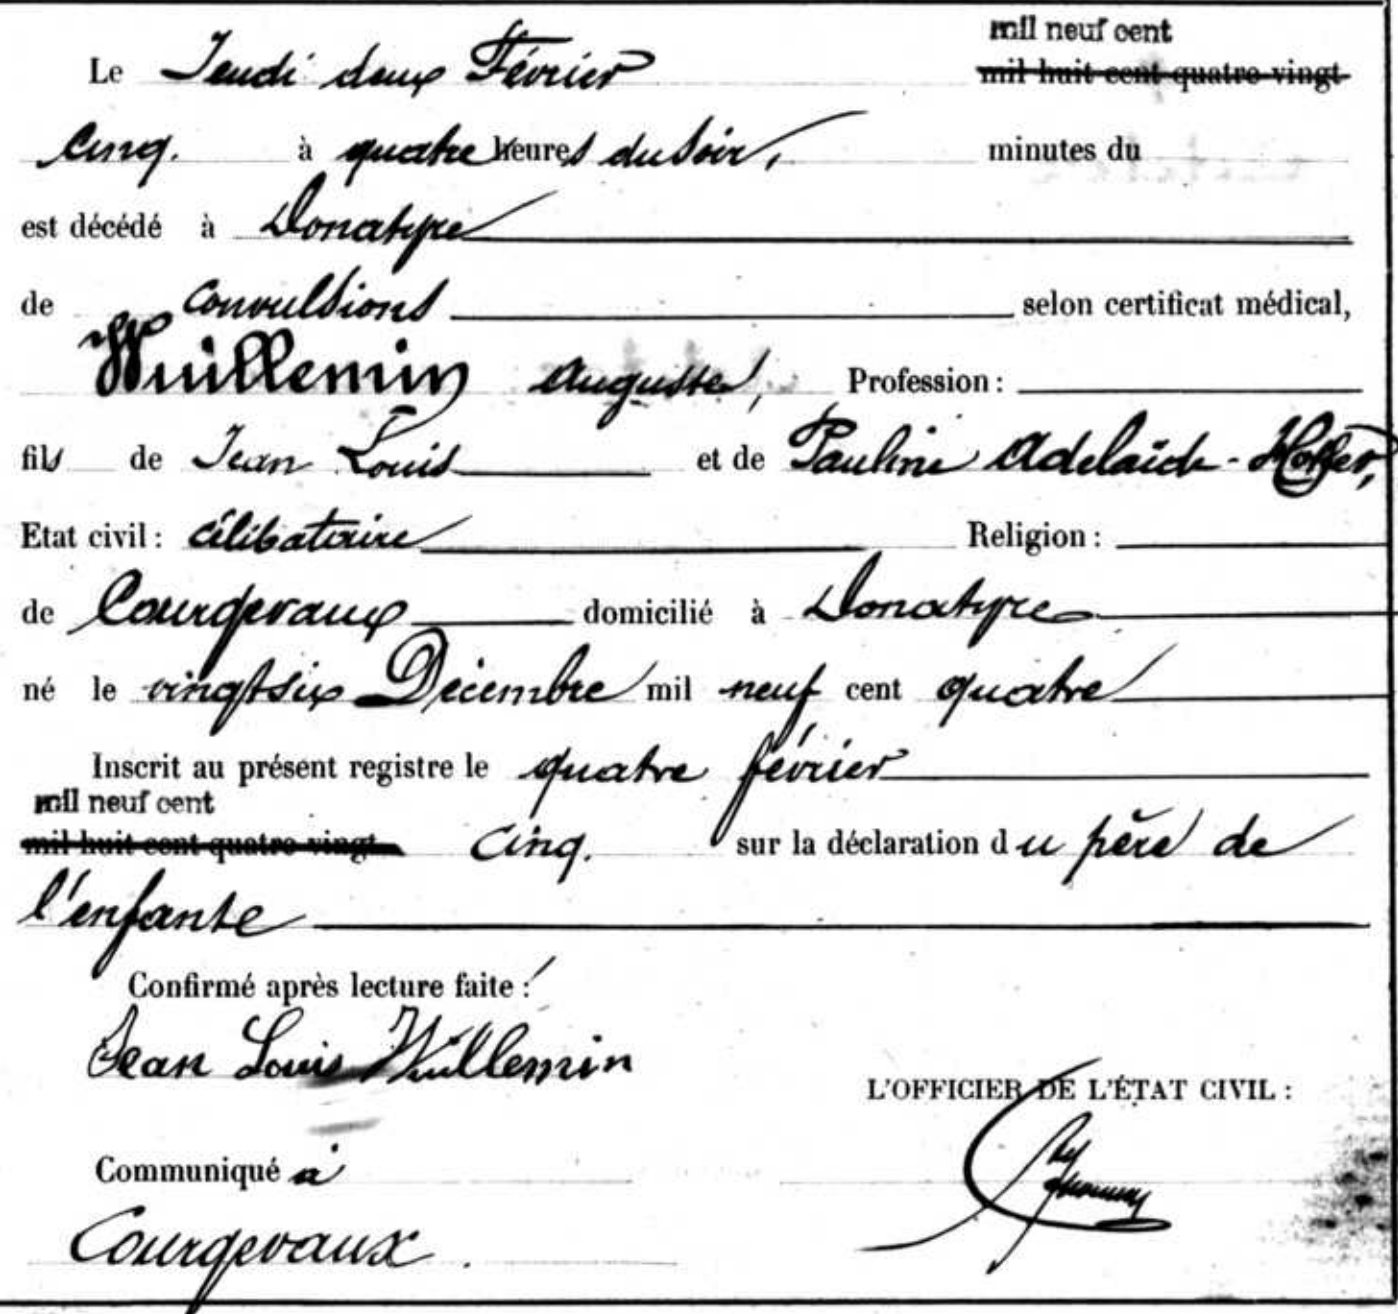 mil neuf cent
Le Jeudi deux Février mil huit cent quatre-vingt
cinq. à quatre heures du soir, minutes du
est décédé à Donatyre
de convulsions selon certificat médical,
Wuillemin Auguste, Profession :
fils de Jean Louis et de Pauline Adelaïde
Etat civil : célibataire Religion :
de Courgevaux domicilié à Donatyre
né le vingtsix Décembre mil neuf cent quatre
Inscrit au présent registre le quatre février
mil neuf cent
mil huit cent quatre-vingt cinq. sur la déclaration du père de
l'enfante
Confirmé après lecture faite :
Jean Louis Wuillemin
L'OFFICIER DE L'ÉTAT CIVIL :
Communiqué à
Courgevaux.